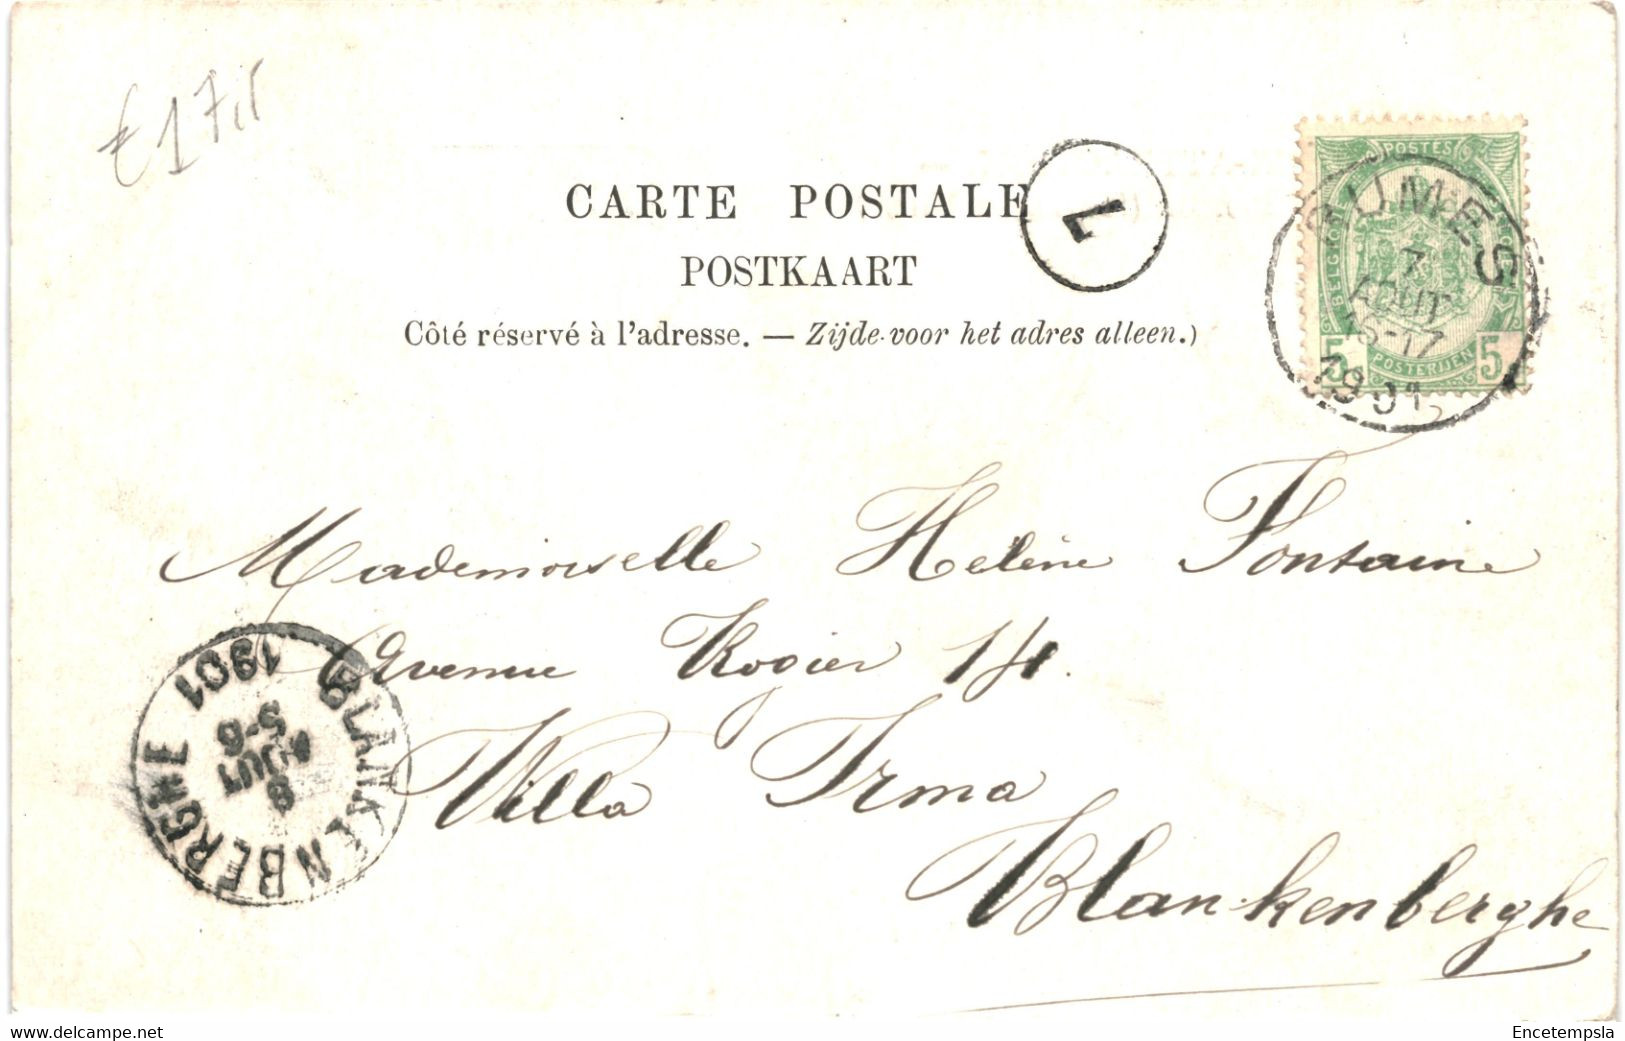 €17,5
CARTE POSTALE
POSTKAART
Côté réservé à l'adresse. — Zijde voor het adres alleen.)
7
POSTES
BELGIQUE
5 POSTERIJEN 5
7
AOUT
16-17
1901
Mademoiselle Hélène Fontaine
Avenue Rogier 14.
Villa Irma
Blankenberghe
BLANKENBERGHE
8
AOUT
5-6
1901
www.delcampe.net
Encetempsla